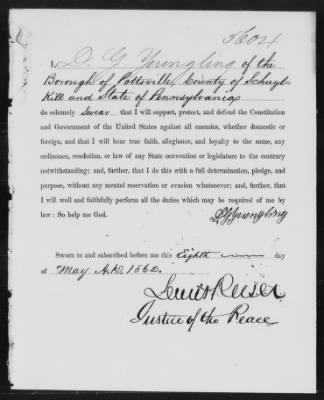 5604
I, D. G Yuengling of the
Borough of Pottsville, County of Schuyl-
Kill and State of Pennsylvania,
do solemnly Swear that I will support, protect, and defend the Constitution
and Government of the United States against all enemies, whether domestic
or foreign, and that I will bear true faith, allegiance, and loyalty to the same, any
ordinance, resolution, or law of any State convention or legislature to the contrary
notwithstanding; and, further, that I do this with a full determination, pledge, and
purpose, without any mental reservation or evasion whatsoever; and, further, that
I will well and faithfully perform all the duties which may be required of me by
law: So help me God.
D G Yuengling
Sworn to and subscribed before me this Eighth day
of May A.D. 1862.
Lewis Reeser
Justice of the Peace